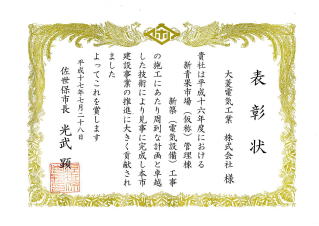 表彰状
大菱電気工業　株式会社　様
貴社は平成十六年度における
新青果市場（仮称）管理棟
新築（電気設備）工事
の施工にあたり周到な計画と卓越
した技術により見事に完成し本市
建設事業の推進に大きく貢献され
ました
よってこれを賞します
平成十七年七月二十八日
佐世保市長　光武　顕